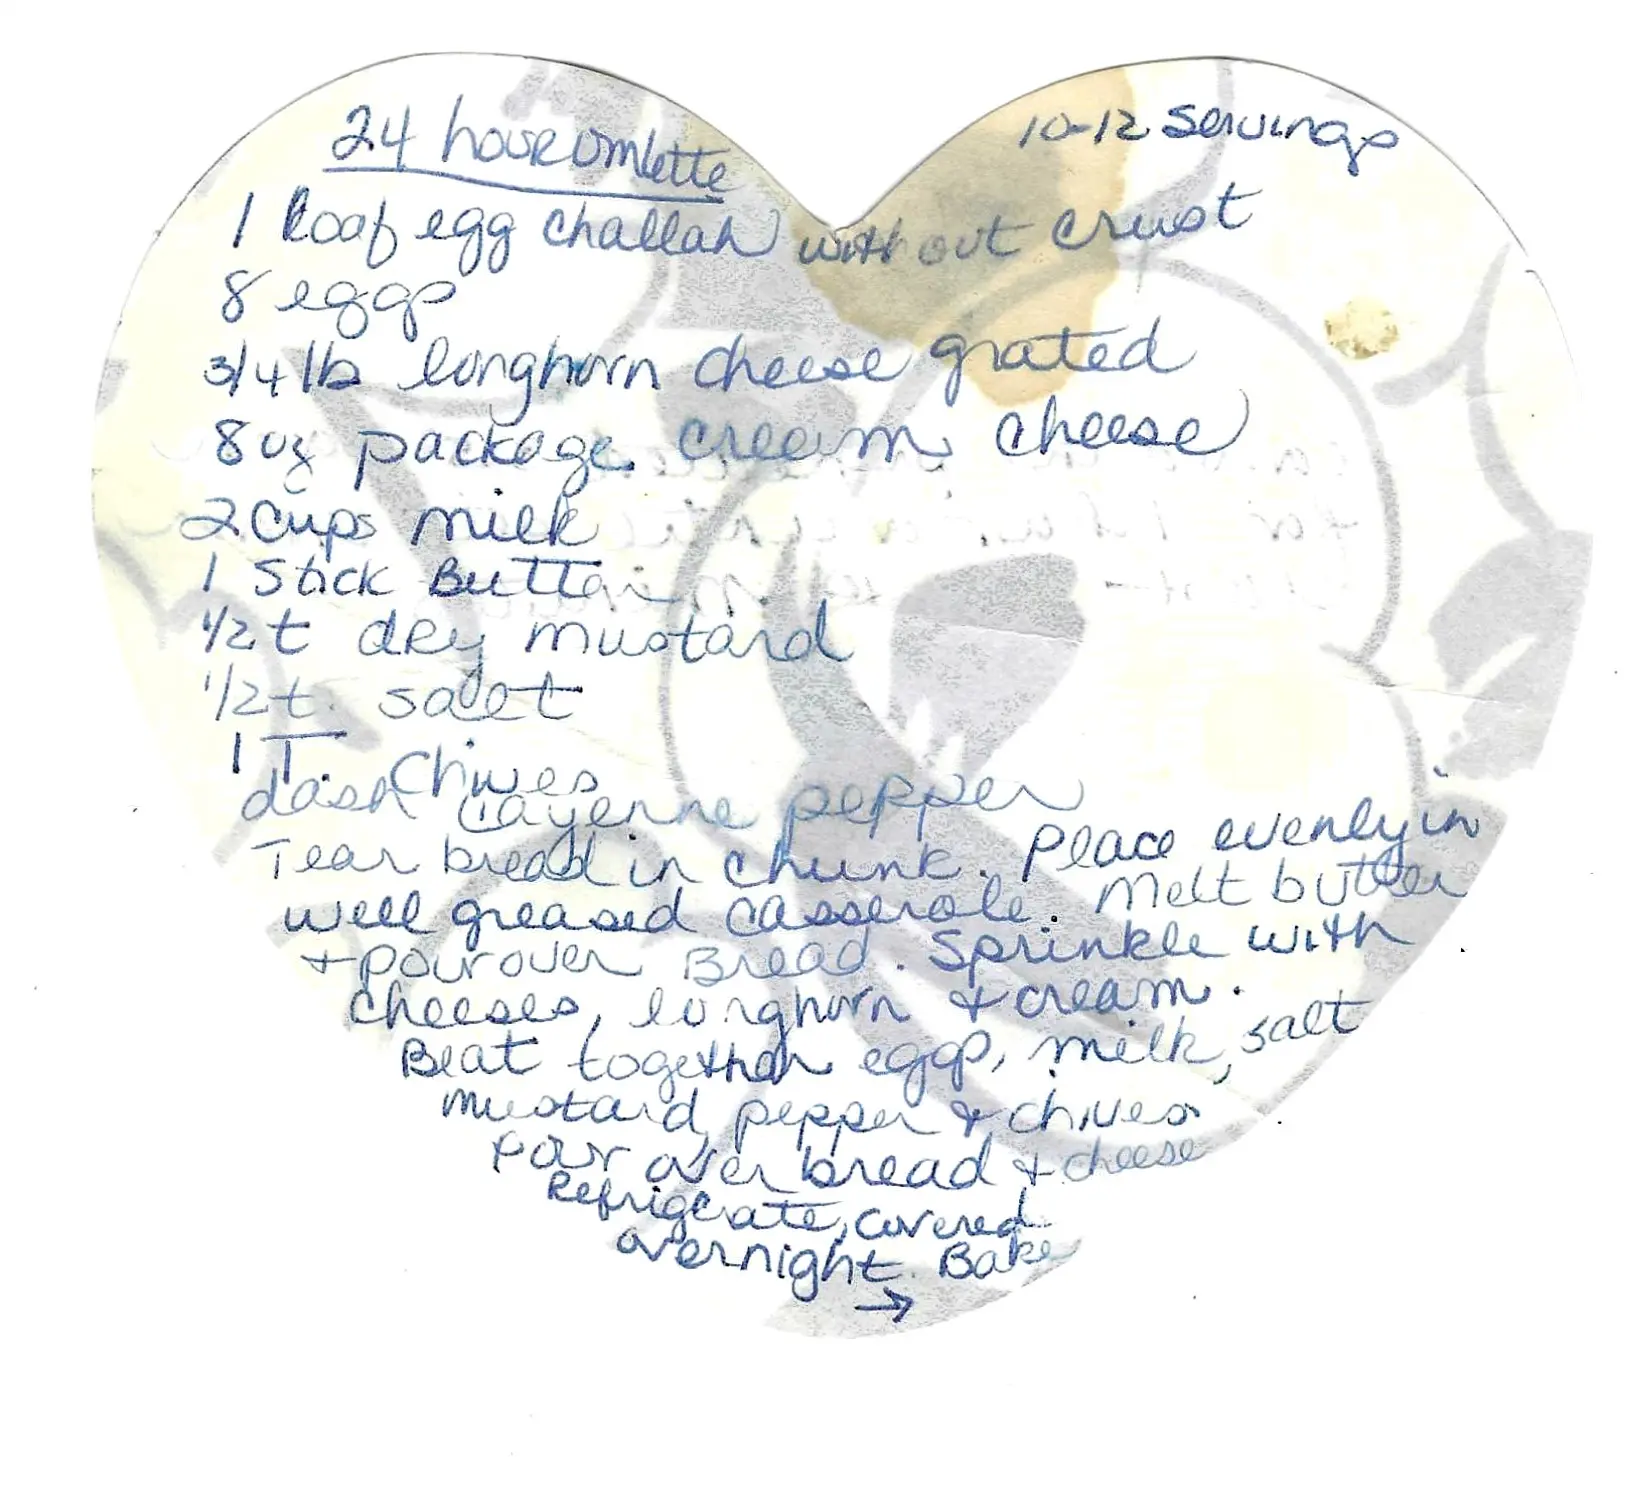 24 hour omlette
10-12 Servings
1 loaf egg challah without crust
8 eggs
3/4 lb longhorn cheese grated
8 oz package cream cheese
2 cups milk
1 stick Butter
1/2 t dry mustard
1/2 t. salt
1 T. Chives
dash Cayenne pepper
Tear bread in chunk. Place evenly in
well greased casserole. Melt butter
+ pour over Bread. Sprinkle with
cheeses, longhorn & cream.
Beat together eggs, milk, salt
mustard, pepper & chives
Pour over bread & cheese
Refrigerate, covered
overnight. Bake
→